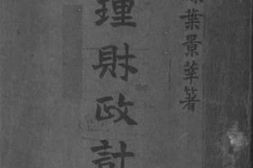 葉景莘著
理財政計